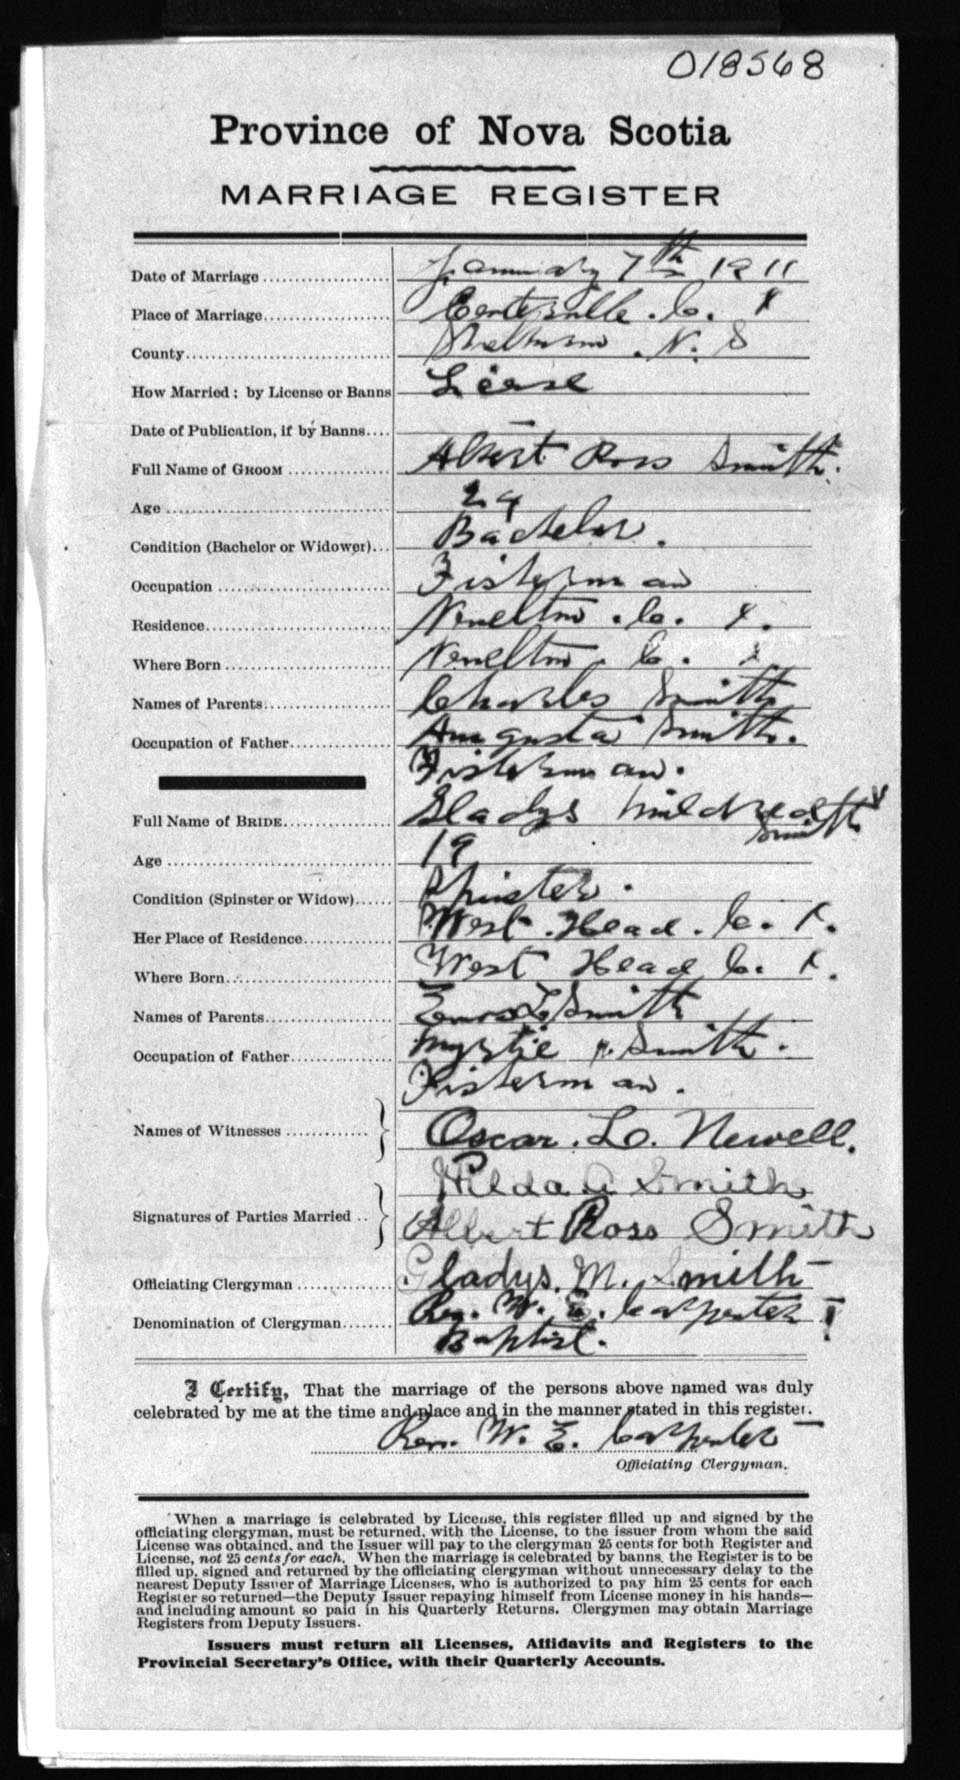 018568
Province of Nova Scotia
MARRIAGE REGISTER
Date of Marriage January 7th 1911
Place of Marriage Centerville. C. I
County Shelburne. N. S
How Married: by License or Banns Licese
Date of Publication, if by Banns —
Full Name of GROOM Albert Ross Smith.
Age 24
Condition (Bachelor or Widower) Bachelor.
Occupation Fisherman
Residence Newellton. C. I.
Where Born Newellton. C. I
Names of Parents Charles Smith
Occupation of Father Augusta Smith.
Fisherman.
Full Name of BRIDE Gladys Mildred
Smith
Age 19
Condition (Spinster or Widow) Spinster.
Her Place of Residence West Head. C. I.
Where Born West Head C. I.
Names of Parents Smith
Occupation of Father Smith.
Fisherman.
Names of Witnesses Oscar. L. Newell.
Hilda A Smith
Signatures of Parties Married Albert Ross Smith
Gladys. M. Smith
Officiating Clergyman Rev. W. E. Carpenter
Denomination of Clergyman Baptist.
I Certify, That the marriage of the persons above named was duly
celebrated by me at the time and place and in the manner stated in this register.
Rev. W. E. Carpenter
Officiating Clergyman.
When a marriage is celebrated by License, this register filled up and signed by the
officiating clergyman, must be returned, with the License, to the issuer from whom the said
License was obtained, and the Issuer will pay to the clergyman 25 cents for both Register and
License, not 25 cents for each. When the marriage is celebrated by banns, the Register is to be
filled up, signed and returned by the officiating clergyman without unnecessary delay to the
nearest Deputy Issuer of Marriage Licenses, who is authorized to pay him 25 cents for each
Register so returned—the Deputy Issuer repaying himself from License money in his hands—
and including amount so paid in his Quarterly Returns. Clergymen may obtain Marriage
Registers from Deputy Issuers.
Issuers must return all Licenses, Affidavits and Registers to the
Provincial Secretary's Office, with their Quarterly Accounts.